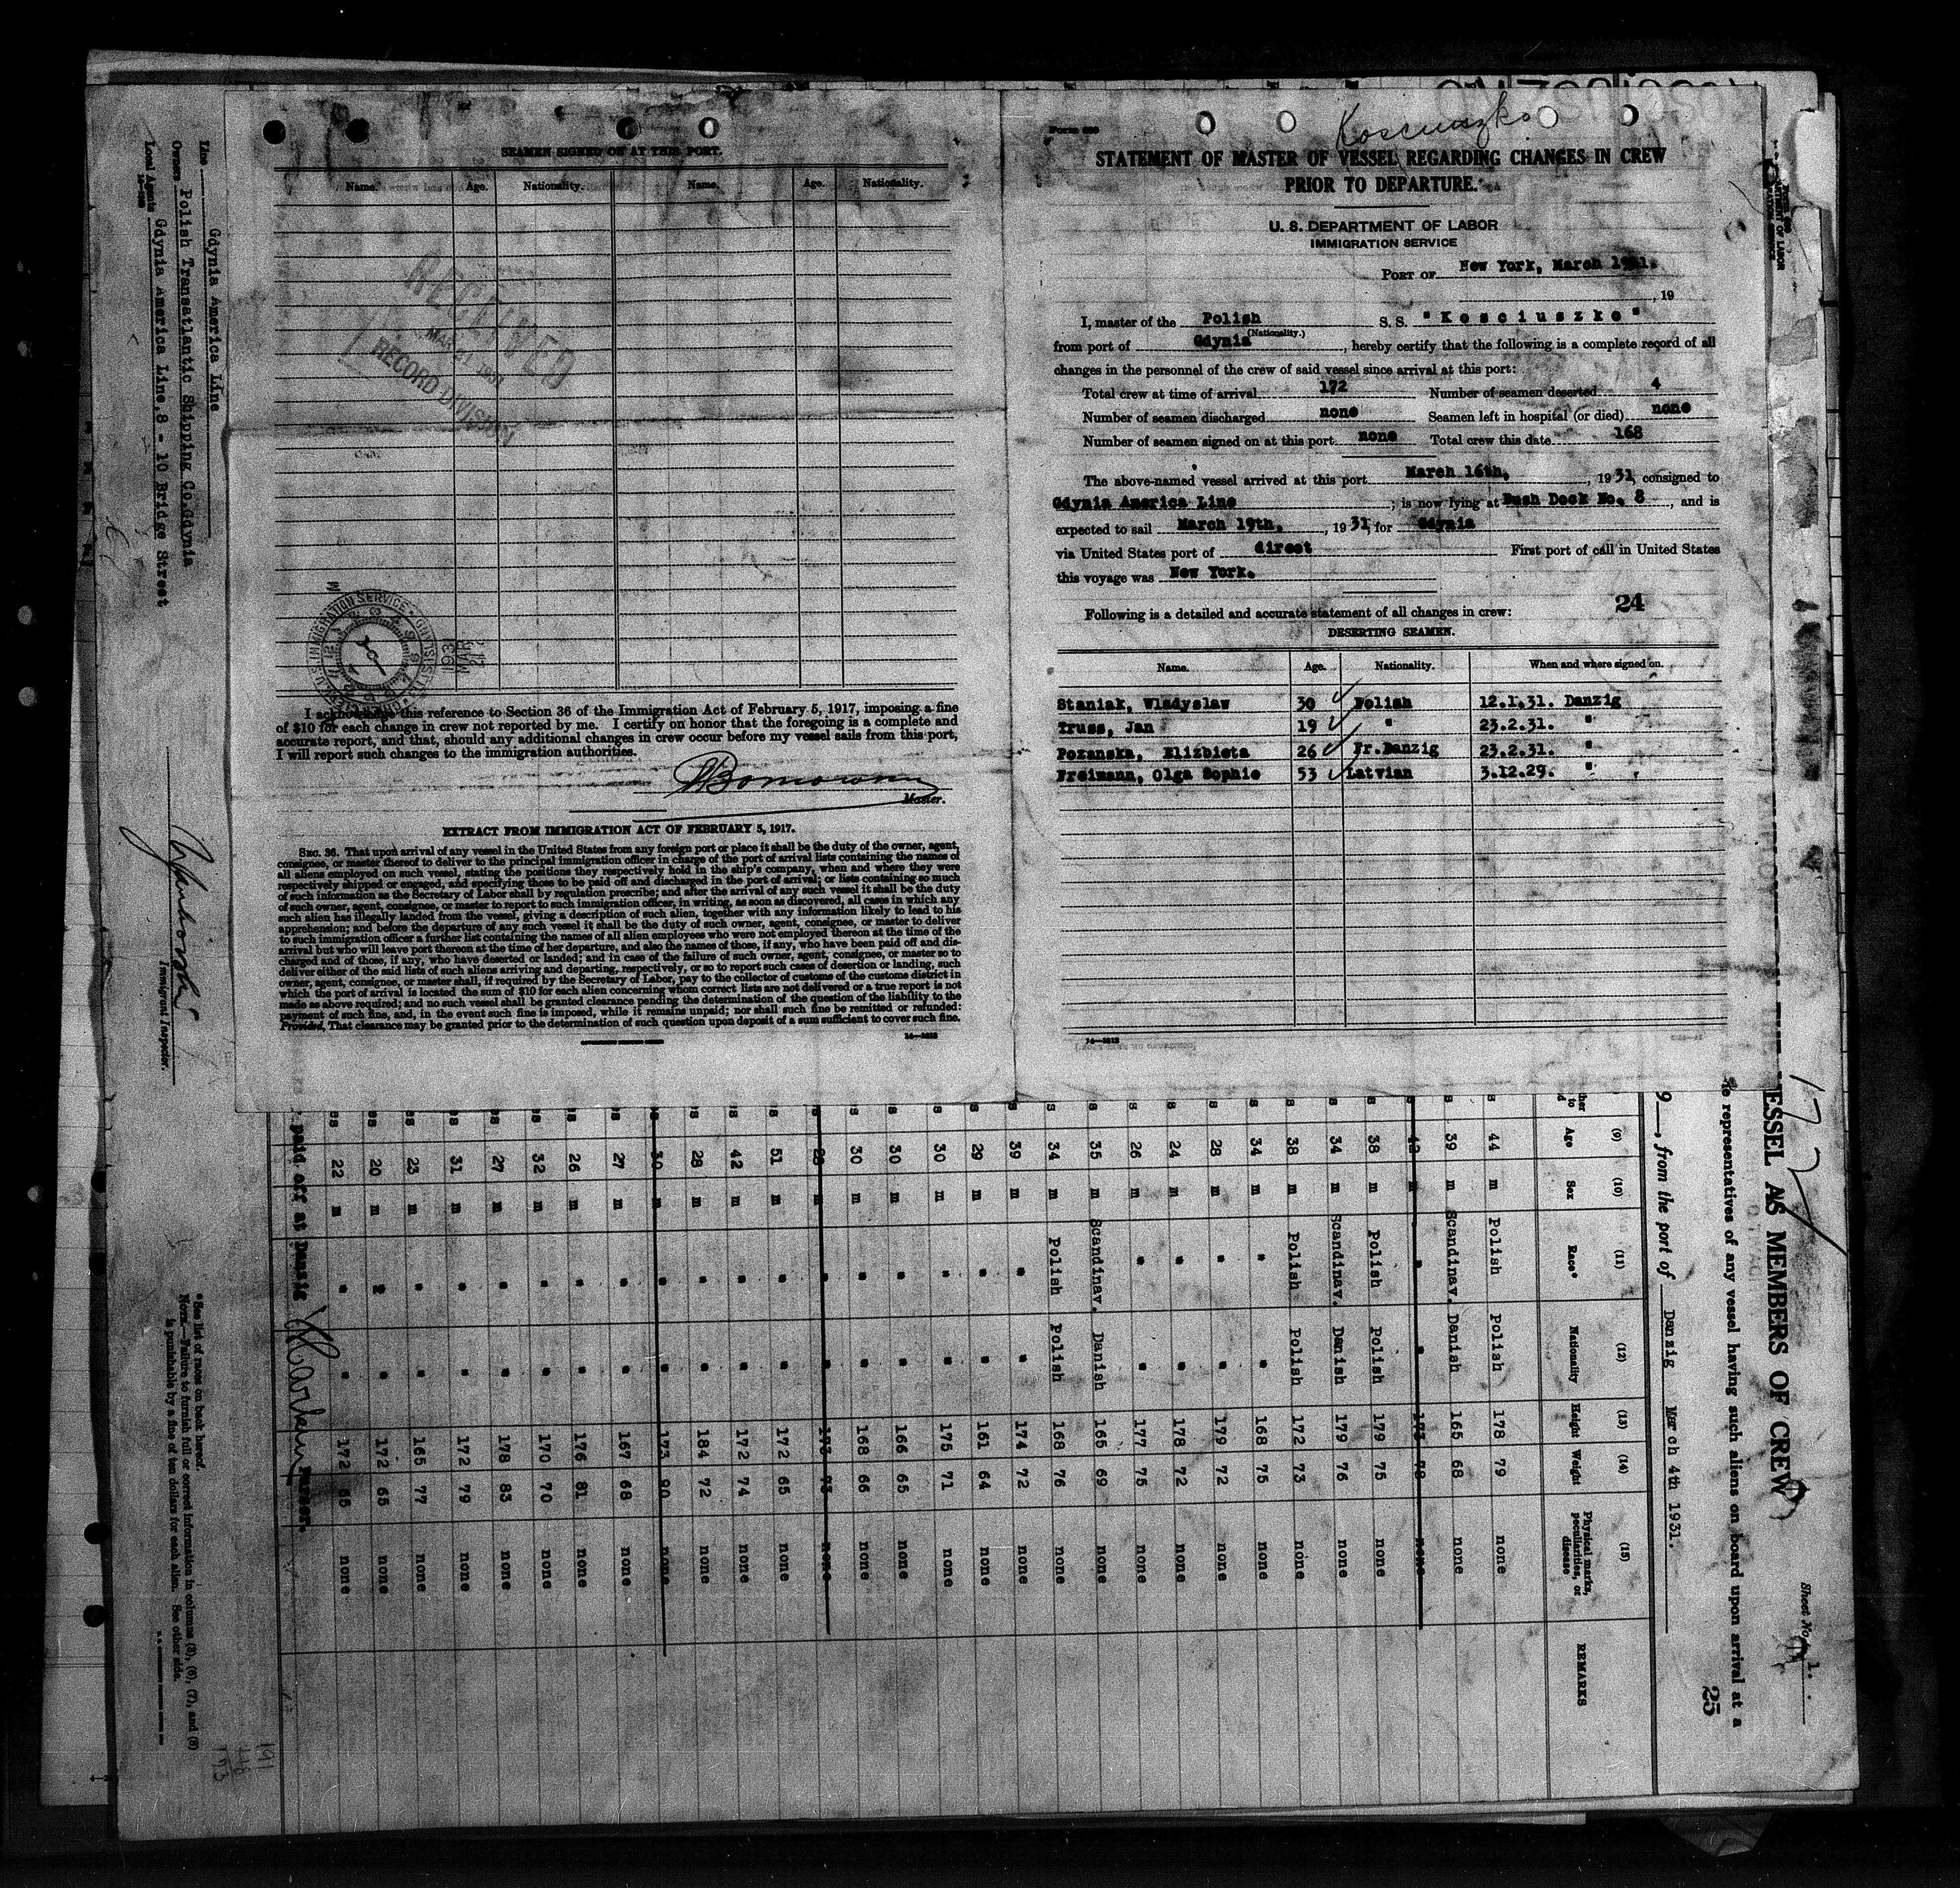 SEAMEN SIGNED ON AT THIS PORT.
Name. Age. Nationality. Name. Age. Nationality.
RECEIVED
RECORD DIVISION
I acknowledge this reference to Section 36 of the Immigration Act of February 5, 1917, imposing a fine
of $10 for each change in crew not reported by me. I certify on honor that the foregoing is a complete and
accurate report, and that, should any additional changes in crew occur before my vessel sails from this port,
I will report such changes to the immigration authorities.
Master.
EXTRACT FROM IMMIGRATION ACT OF FEBRUARY 5, 1917.
SEC. 36. That upon arrival of any vessel in the United States from any foreign port or place it shall be the duty of the owner, agent,
consignee, or master thereof to deliver to the principal immigration officer in charge of the port of arrival lists containing the names of
all aliens employed on such vessel, stating the positions they respectively hold in the ship's company, when and where they were
respectively shipped or engaged, and specifying those to be paid off and discharged in the port of arrival; or lists containing so much
of such information as the Secretary of Labor shall by regulation prescribe; and after the arrival of any such vessel it shall be the duty
of such owner, agent, consignee, or master to report to such immigration officer, in writing, as soon as discovered, all cases in which any
such alien has illegally landed from the vessel, giving a description of such alien, together with any information likely to lead to his
apprehension; and before the departure of any such vessel it shall be the duty of such owner, agent, consignee, or master to deliver
to such immigration officer a further list containing the names of all alien employees who were not employed thereon at the time of the
arrival but who will leave port thereon at the time of her departure, and also the names of those, if any, who have been paid off and dis-
charged and of those, if any, who have deserted or landed; and in case of the failure of such owner, agent, consignee, or master so to
deliver either of the said lists of such aliens arriving and departing, respectively, or so to report such cases of desertion or landing, such
owner, agent, consignee, or master shall, if required by the Secretary of Labor, pay to the collector of customs of the customs district in
which the port of arrival is located the sum of $10 for each alien concerning whom correct lists are not delivered or a true report is not
made as above required; and no such vessel shall be granted clearance pending the determination of the question of the liability to the
payment of such fine, and, in the event such fine is imposed, while it remains unpaid; nor shall such fine be remitted or refunded:
Provided, That clearance may be granted prior to the determination of such question upon deposit of a sum sufficient to cover such fine.
Kosciuszko
STATEMENT OF MASTER OF VESSEL REGARDING CHANGES IN CREW
PRIOR TO DEPARTURE.
U. S. DEPARTMENT OF LABOR
IMMIGRATION SERVICE
PORT OF New York, March 1931.
, 19
I, master of the Polish S. S. "Kosciuszko"
(Nationality.)
from port of Gdynia, hereby certify that the following is a complete record of all
changes in the personnel of the crew of said vessel since arrival at this port:
Total crew at time of arrival 172 Number of seamen deserted 4
Number of seamen discharged none Seamen left in hospital (or died) none
Number of seamen signed on at this port none Total crew this date 168
The above-named vessel arrived at this port March 16th, , 1931, consigned to
Gdynia America Line ; is now lying at Bush Dock No. 8 , and is
expected to sail March 19th, , 1931, for Gdynia
via United States port of direct First port of call in United States
this voyage was New York.
Following is a detailed and accurate statement of all changes in crew: 24
DESERTING SEAMEN.
Name. Age. Nationality. When and where signed on.
Staniak, Wladyslaw 30 Polish 12.1.31. Danzig
Truss, Jan 19 " 23.2.31. "
Pozanska, Elizbieta 26 Fr.Danzig 23.2.31. "
Freimann, Olga Sophie 53 Latvian 3.12.29. "
Line Gdynia America Line
Owners Polish Transatlantic Shipping Co.Gdynia
Local Agents Gdynia America Line,8 - 10 Bridge Street
Immigrant Inspector.
ESSEL AS MEMBERS OF CREW
Sheet No. 1.
representatives of any vessel having such aliens on board upon arrival at a
25
9 , from the port of Danzig March 4th 1931.
(9) (10) (11) (12) (13) (14) (15)
Age Sex Race* Nationality Height Weight Physical marks, peculiarities, or disease REMARKS
44 m Polish Polish 178 79 none
39 m Scandinav. Danish 165 68 none
42 m " " 173 78 none
38 m Polish Polish 179 75 none
34 m Scandinav. Danish 179 76 none
38 m Polish Polish 172 73 none
34 m " " 168 75 none
28 m " " 179 72 none
24 m " " 178 72 none
26 m " " 177 75 none
35 m Scandinav. Danish 165 69 none
34 m Polish Polish 168 76 none
39 m " " 174 72 none
29 m " " 161 64 none
30 m " " 175 71 none
30 m " " 166 65 none
30 m " " 168 66 none
28 m " " 173 73 none
51 m " " 172 65 none
42 m " " 172 74 none
28 m " " 184 72 none
30 m " " 173 90 none
27 m " " 167 68 none
26 m " " 176 81 none
32 m " " 170 70 none
27 m " " 178 83 none
31 m " " 172 79 none
23 m " " 165 77 none
20 m " " 172 65 none
22 m " " 172 65 none
paid off at Danzig Purser.
*See list of races on back hereof.
NOTE.—Failure to furnish full or correct information in columns (3), (6), (7), and (8)
is punishable by a fine of ten dollars for each alien. See other side.